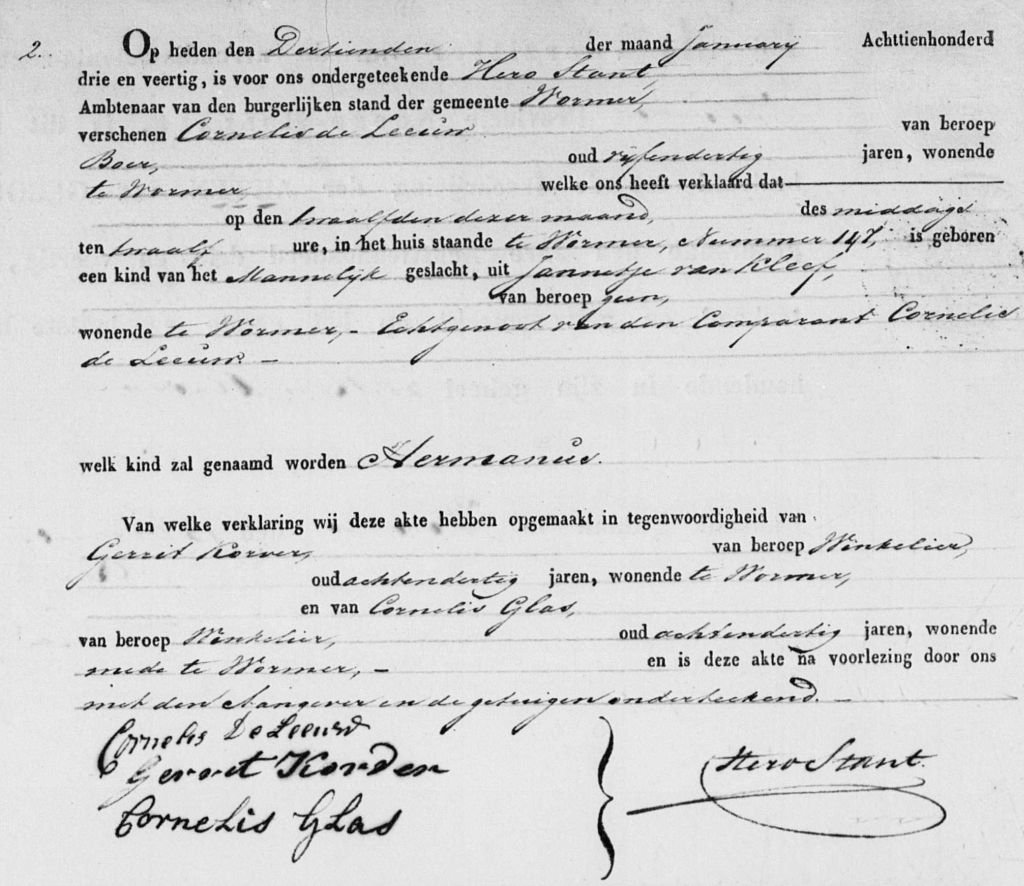 2. Op heden den Dertienden der maand January Achttienhonderd
drie en veertig, is voor ons ondergeteekende Hero Stant,
Ambtenaar van den burgerlijken stand der gemeente Wormer,
verschenen Cornelis de Leeuw van beroep
Boer, oud vyfendertig jaren, wonende
te Wormer, welke ons heeft verklaard dat
op den twaalfden dezer maand, des middags
ten twaalf ure, in het huis staande te Wormer, Nummer 147, is geboren
een kind van het Mannelyk geslacht, uit Jannetje van Kleef,
van beroep geen,
wonende te Wormer, - Echtgenoot van den Comparant Cornelis
de Leeuw. -
welk kind zal genaamd worden Hermanus.
Van welke verklaring wij deze akte hebben opgemaakt in tegenwoordigheid van
Gerrit Korver, van beroep Winkelier,
oud achtendertig jaren, wonende te Wormer,
en van Cornelis Glas,
van beroep Winkelier, oud achtendertig jaren, wonende
mede te Wormer, - en is deze akte na voorlezing door ons
met den Aangever en de getuigen onderteekend. -
Cornelis De Leeuw
Gerret Korver
Cornelis Glas
Hero Stant.